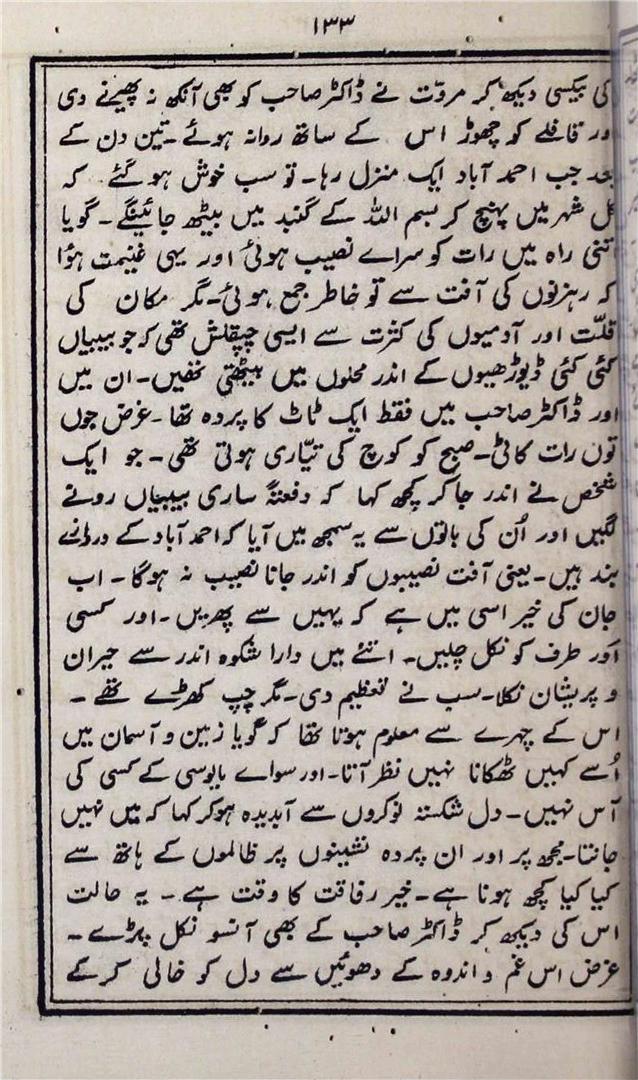 ۱۳۳
کی بیکسی دیکھ کر مروّت نے ڈاکٹر صاحب کو بھی آنکھ نہ پھیرنے دی
ور قافلے کو چھوڑ اس کے ساتھ روانہ ہوئے۔ تین دن کے
بعد جب احمد آباد ایک منزل رہا۔ تو سب خوش ہو گئے کہ
کل شہر میں پہنچ کر بسم اللہ کے گنبد میں بیٹھ جائینگے۔ گویا
اتنی راہ میں رات کو سراے نصیب ہوئی اور یہی غنیمت ہؤا
کہ رہزنوں کی آفت سے تو خاطر جمع ہوئی۔ مگر مکان کی
قلّت اور آدمیوں کی کثرت سے ایسی چپقلش تھی کہ جو بیبیاں
کئی کئی ڈیوڑھیوں کے اندر محلوں میں بیٹھتی تھیں۔ ان میں
اور ڈاکٹر صاحب میں فقط ایک ٹاٹ کا پردہ تھا۔ غرض جوں
توں رات کاٹی۔ صبح کو کوچ کی تیّاری ہوتی تھی۔ جو ایک
شخص نے اندر جا کر کچھ کہا کہ دفعتہً ساری بیبیاں رونے
لگیں اور اُن کی باتوں سے یہ سمجھ میں آیا کہ احمد آباد کے دروازے
بند ہیں۔ یعنی آفت نصیبوں کو اندر جانا نصیب نہ ہوگا۔ اب
جان کی خیر اسی میں ہے کہ یہیں سے پھریں۔ اور کسی
اَور طرف کو نکل چلیں۔ اتنے میں دارا شکوہ اندر سے حیران
و پریشان نکلا۔ سب نے تعظیم دی۔ مگر چپ کھڑے تھے۔
اس کے چہرے سے معلوم ہوتا تھا کہ گویا زمین و آسمان میں
اُسے کہیں ٹھکانا نہیں نظر آتا۔ اور سواے مایوسی کے کسی کی
آس نہیں۔ دل شکستہ نوکروں سے آبدیدہ ہو کر کہا کہ میں نہیں
جانتا۔ مجھ پر اور ان پردہ نشینوں پر ظالموں کے ہاتھ سے
کیا کیا کچھ ہونا ہے۔ خیر رفاقت کا وقت ہے۔ یہ حالت
اس کی دیکھ کر ڈاکٹر صاحب کے بھی آنسو نکل پڑے۔
غرض اس غم و اندوہ کے دھوئیں سے دل کو خالی کر کے